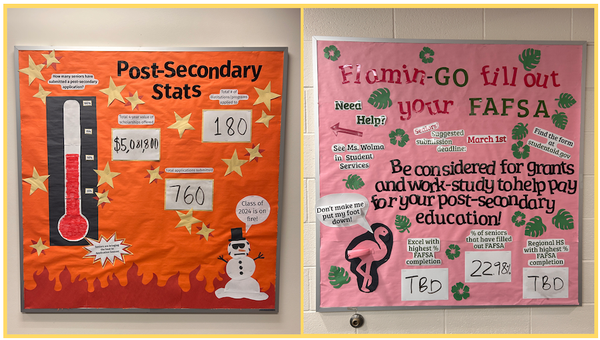 How many seniors have
submitted a post-secondary
application?
Post-Secondary
Stats
Total # of
institutions/programs
applied to
180
Total $ value of
scholarships offered
$5,081,800
Total applications submitted
760
Class of
2024 is on
fire!
Flamin-GO fill out
your FAFSA
Need
Help?
See Ms. Wolma
in Student
Services
Seniors:
Suggested
submission
deadline:
March 1st
Find the form
at
studentaid.gov
Be considered for grants
and work-study to help pay
for your post-secondary
education!
Don't make me
put my foot
down!
Excel with
highest %
FAFSA
completion
TBD
% of seniors
that have filled
out FAFSA
Regional HS
with highest %
FAFSA
completion
TBD